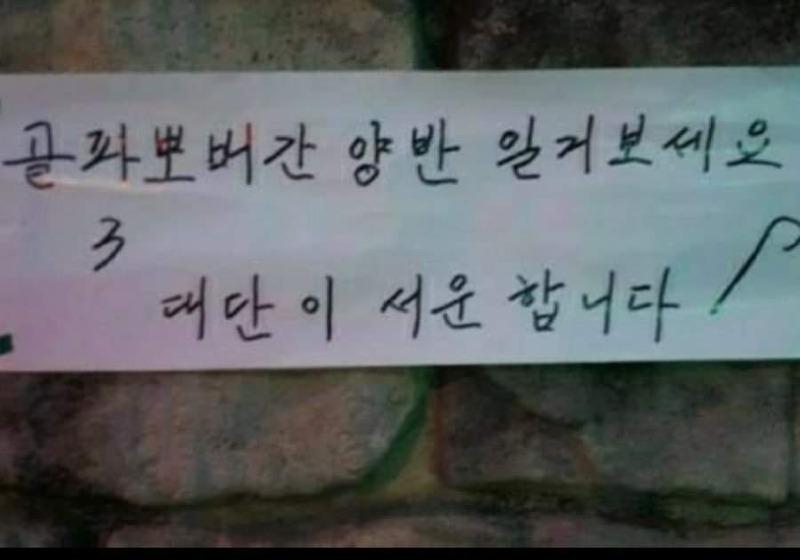 골파뽀버간 양반 일거보세요
3
대단이 서운 합니다